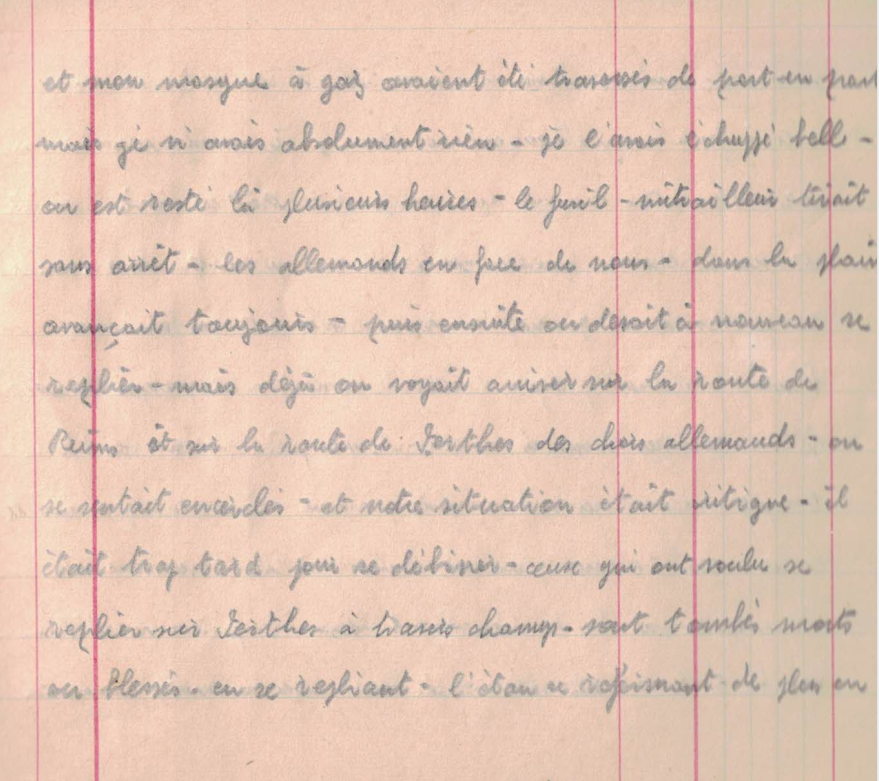 et mon masque à gaz avaient été traversés de part en part
mais je n'avais absolument rien - je l'avais échappé belle -
on est resté là plusieurs heures - le fusil-mitrailleur tirait
sans arrêt - les allemands en face de nous - dans la plai
avançait toujours - puis ensuite on devait à nouveau se
replier - mais déjà on voyait arriver sur la route de
Reims et sur la route de Perthes des chars allemands - on
se sentait encerclés - et notre situation était critique - il
était trop tard pour se débiner - ceux qui ont voulu se
replier sur Perthes à travers champ - sont tombés morts
ou blessés - en se repliant - l'étau se refermant de plus en